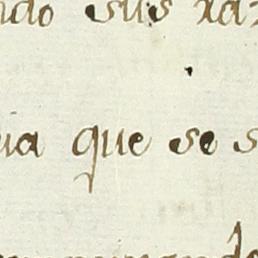 ndo sus raz
ua que se s